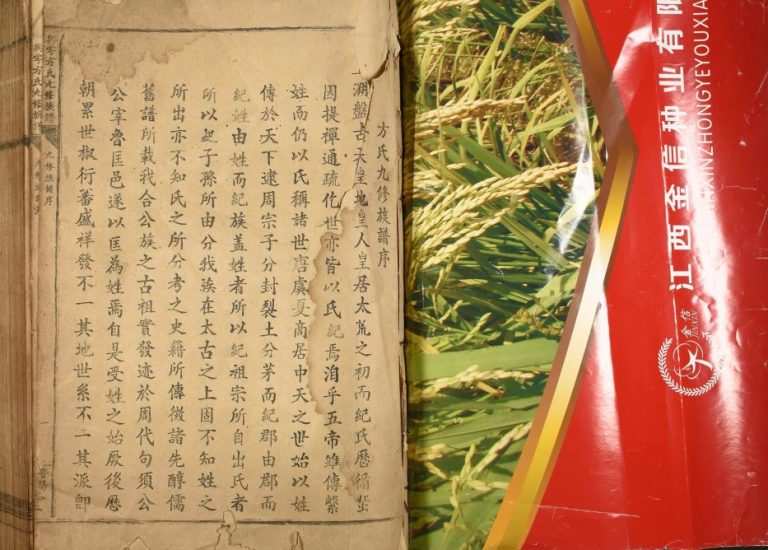 方氏九修族譜序
溯盤古天皇地皇人皇居太荒之初而紀氏歷循蜚
因提禪通疏仡世亦皆以氏紀焉洎乎五帝維傳繫
姓而仍以氏稱諸世唐虞夏商居中天之世始以姓
傳於天下逮周宗子分封裂土分茅而紀郡由郡而
紀姓由姓而紀族蓋姓者所以紀祖宗所自出氏者
所以起子孫所由分我族在太古之上固不知姓之
所出亦不知氏之所分考之史籍所傳徵諸先醇儒
舊譜所載我合公族之古祖實發迹於周代句須公
公宰魯匡邑遂以匡為姓焉自是受姓之始厥後歷
朝累世椒行番盛祥發不一其地世系不一其派卽
方氏九修族譜
九修族譜序
江西金信种业有限
XINZHONGYEYOUXIA
金信
JINXIN